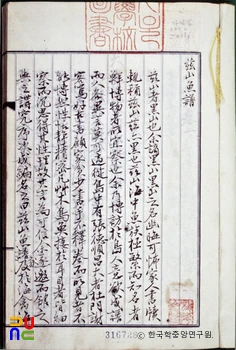 玆山魚譜
玆山者黑山也余謫黑山黑山之名幽晦可怖家人書牘
輒稱玆山玆亦黑也玆山海中魚族極繁而知名者
鮮博物者所宜察也余乃博訪於島人意欲成譜
而人各異言莫可適從島中有張德順昌大者杜門謝
客篤好古書顧家貧少書手不釋卷而所見者不
能博然性恬靜精密凡草木鳥魚接於耳目者皆細
察而沈思得其性理故其言爲可信余遂邀而館之
與之講究序次成編名之曰玆山魚譜旁及於海禽
316728
©한국학중앙연구원